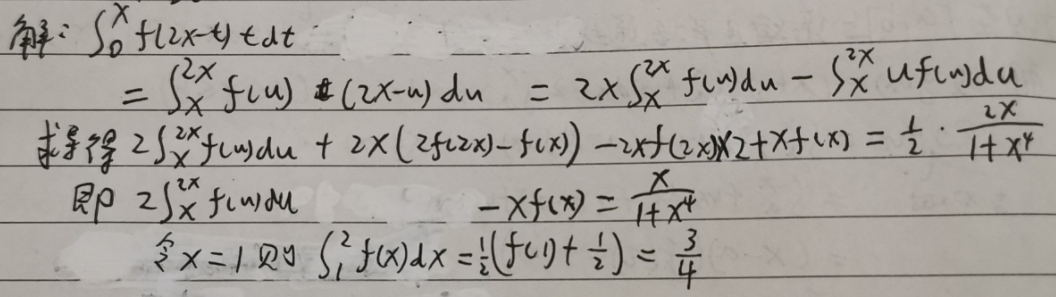 解: ∫₀ˣ f(2x-t) t dt
= ∫ₓ²ˣ f(u) (2x-u) du = 2x∫ₓ²ˣ f(u)du - ∫ₓ²ˣ uf(u)du
求导得 2∫ₓ²ˣ f(u)du + 2x(2f(2x)-f(x)) -2xf(2x)×2+xf(x) = 1/2 · 2x/(1+x⁴)
即 2∫ₓ²ˣ f(u)du -xf(x) = x/(1+x⁴)
令x=1则 ∫₁² f(x)dx = 1/2(f(1)+1/2) = 3/4